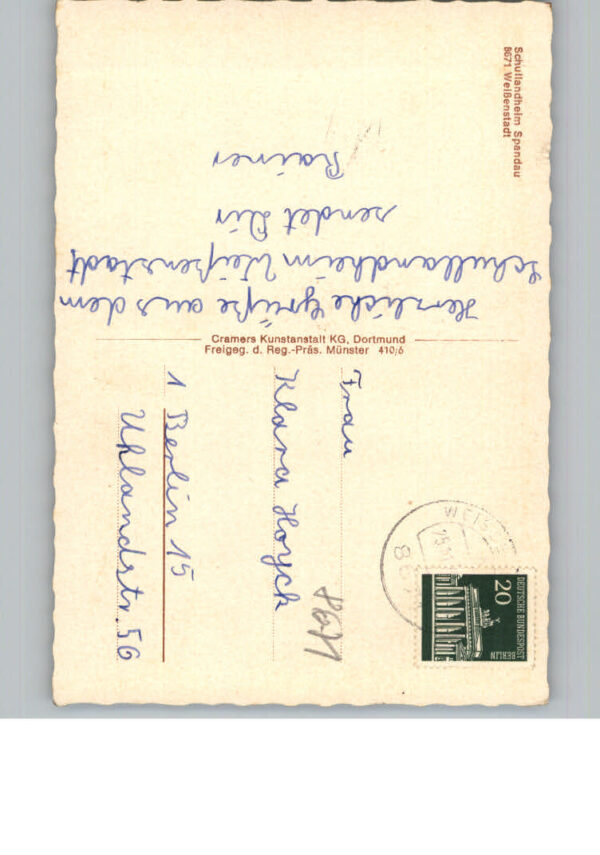 Schullandheim Spandau
8671 Weißenstadt
Herzliche Grüße aus dem
Schullandheim Weißenstadt
sendet Dir
Rainer
Cramers Kunstanstalt KG, Dortmund
Freigeg. d. Reg.-Präs. Münster 410/6
Frau
Klara Hoyck
1 Berlin 15
Uhlandstr. 56
8671
DEUTSCHE BUNDESPOST
BERLIN
20